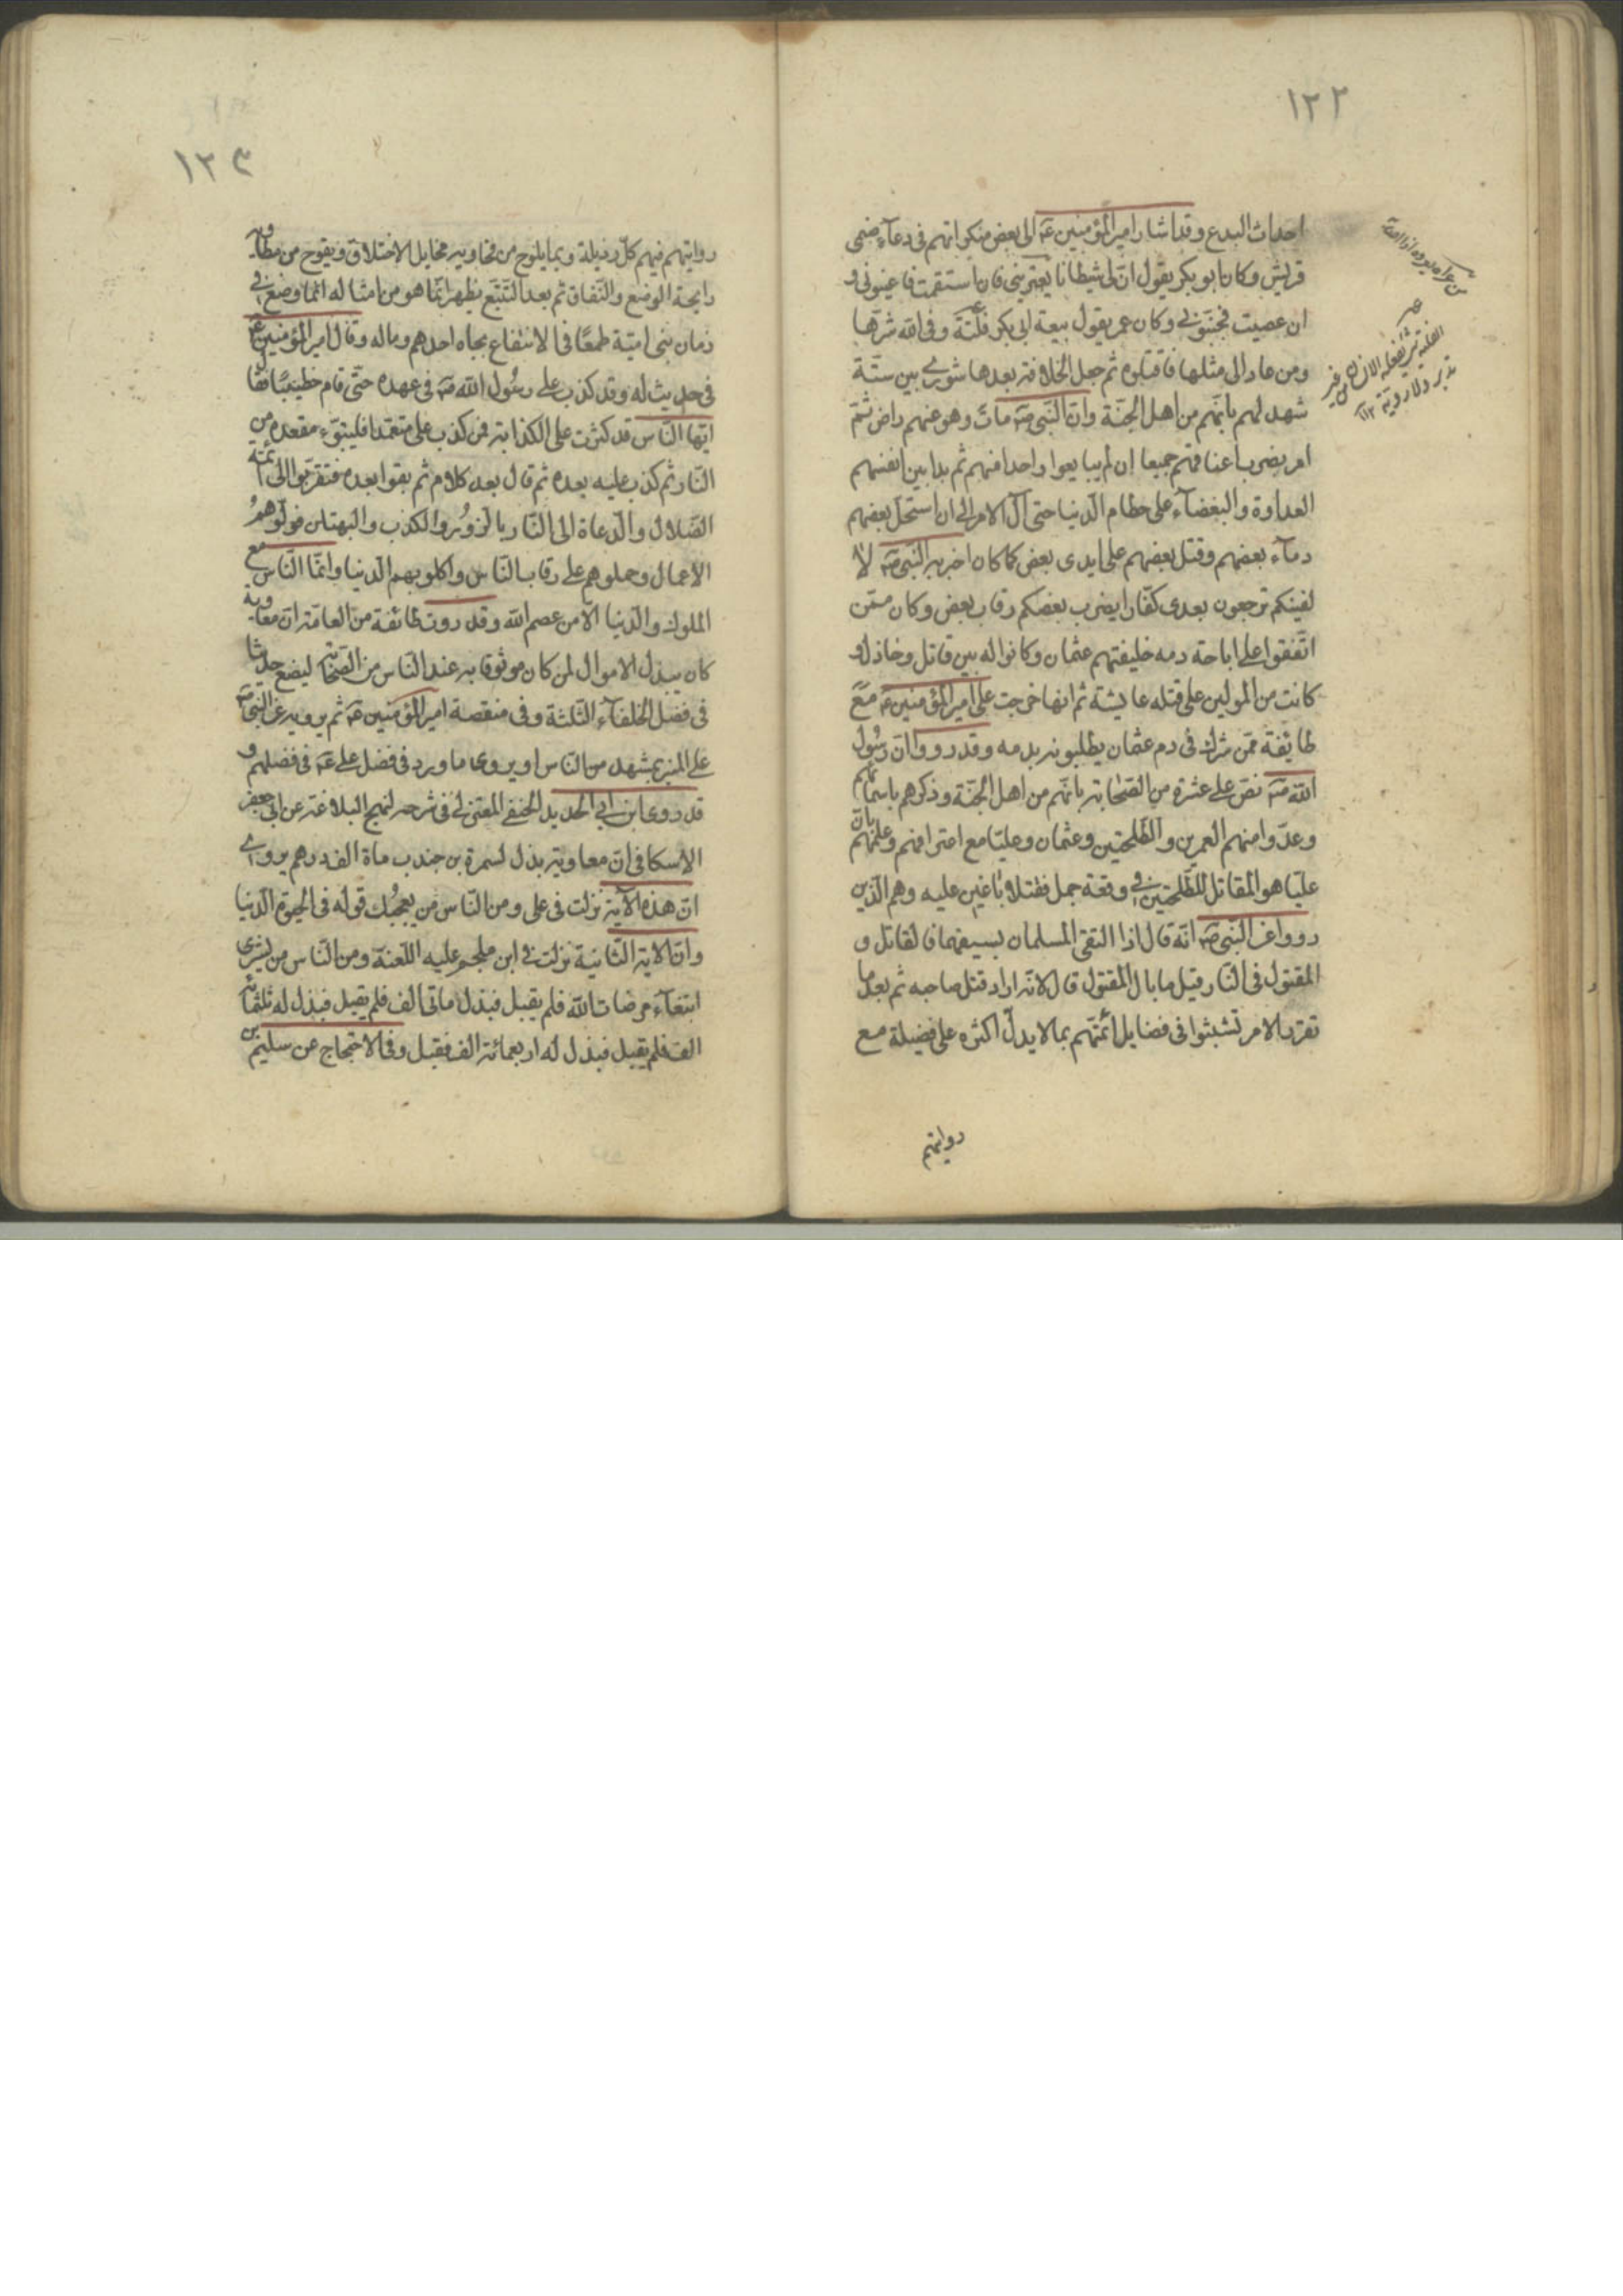 ١٢٢
احداث البدع وقد اشار امير المؤمنين عه الى بعض منكراتهم فى دعآء صنمى
قريش وكان ابو بكر يقول ان لى شيطانا يعترينى فان استقمت فاعينونى و
ان عصيت فجنبونى وكان عمر يقول بيعة ابى بكر فلتة وقى الله شرها
ومن عاد الى مثلها فاقتلوه ثم جعل الخلافة بعدها شورى بين ستة
شهد لهم بانهم من اهل الجنة وان النبى صه مات وهو عنهم راض ثم
امر بضرب اعناقهم جميعا ان لم يبايعوا واحدا منهم ثم بدا بين انفسهم
العداوة والبغضآء على حطام الدنيا حتى آل الامر الى ان استحل بعضهم
دمآء بعضهم وقتل بعضهم على ايدى بعض كما كان اخبر به النبى صه لا
لفينكم ترجعون بعدى كفارا يضرب بعضكم رقاب بعض وكان ممن
اتفقوا على اباحة دمه خليفتهم عثمان وكانوا له بين قاتل وخاذل و
كانت من المولين على قتله عايشة ثم انها خرجت على امير المؤمنين عه مع
طايفة ممن شرك فى دم عثمان يطلبونه بدمه وقد رووا ان رسول
الله صه نص على عشرة من الصحابة بانهم من اهل الجنة وذكرهم باسمائهم
وعدوا منهم العمرين والطلحتين وعثمان وعليا مع اعترافهم وعلمهم بان
عليا هو المقاتل للطلحتين فى وقعة جمل فقتلا باغين عليه وهم الذين
رووا عن النبى صه انه قال اذا التقى المسلمان بسيفهما فالقاتل و
المقتول فى النار قيل ما بال المقتول قال لانه اراد قتل صاحبه ثم بعد ما
تقرر الامر تشبثوا فى فضايل ائمتهم بما لا يدل اكثره على فضيلة مع
روايتهم
١٢٣
روايتهم فيهم كل رذيلة وبما يلوح من فحاويه مخايل الاختلاق ويفوح من مطاويه
رايحة الوضع والنفاق ثم بعد التتبع يظهر انما هو من امثاله انما وضع فى
زمان بنى امية طمعًا فى الانتفاع بجاه احدهم وماله وقال امير المؤمنين عه
فى حديث له وقد كذب على رسول الله صه فى عهده حتى قام خطيبًا فقال
ايها الناس قد كثرت على الكذابة فمن كذب على متعمدا فليتبوء مقعده من
النار ثم كذب عليه بعده ثم قال بعد كلام ثم بقوا بعده فتقربوا الى ائمة
الضلال والدعاة الى النار بالزور والكذب والبهتان فولوهم
الاعمال وحملوهم على رقاب الناس واكلوا بهم الدنيا وانما الناس مع
الملوك والدنيا الا من عصم الله وقد روت طائفة من العامة ان معاوية
كان يبذل الاموال لمن كان موثوقا به عند الناس من الصحابة ليضع حديثا
فى فضل الخلفآء الثلثة وفى منقصة امير المؤمنين عه ثم يرويه عن النبى صه
على المنبر بمشهد من الناس او يروى ما ورد فى فضل على عه فى فضلهم و
قد روى ابن ابى الحديد الحنفى المعتزلى فى شرحه لنهج البلاغة عن ابى جعفر
الاسكافى ان معاوية بذل لسمرة بن جندب ماة الف درهم يروى
ان هذه الآية نزلت فى على ومن الناس من يعجبك قوله فى الحيوة الدنيا
وان الاية الثانية نزلت فى ابن ملجم عليه اللعنة ومن الناس من يشرى
ابتغآء مرضات الله فلم يقبل فبذل ماتى الف فلم يقبل فبذل له ثلثمائة
الف فلم يقبل فبذل له اربعمائة الف فقبل وفى الاحتجاج عن سليم بن